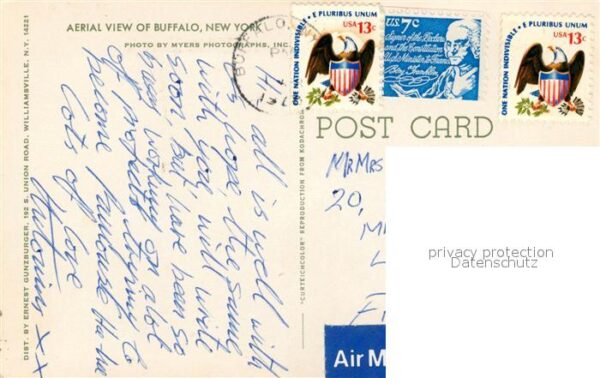 AERIAL VIEW OF BUFFALO, NEW YORK
PHOTO BY MYERS PHOTOGRAPHS, INC.
DIST. BY ERNEST GUNZBURGER, 192 S. UNION ROAD, WILLIAMSVILLE, N.Y. 14221
Hi
all is well with
us hope the same
with you, will write
soon but have been so
busy working on a lot
of
become famous Ha ha
Lots of love
x x
"CURTEICHCOLOR" REPRODUCTION FROM KODACHROME
BUFFALO, NY
PM
E PLURIBUS UNUM
ONE NATION INDIVISIBLE
USA 13c
U.S. 7c
Signer of the Declaration
and the Constitution
U.S. Minister to France
Benj Franklin
E PLURIBUS UNUM
ONE NATION INDIVISIBLE
USA 13c
POST CARD
Mr Mrs
20,
privacy protection
Datenschutz
Air M